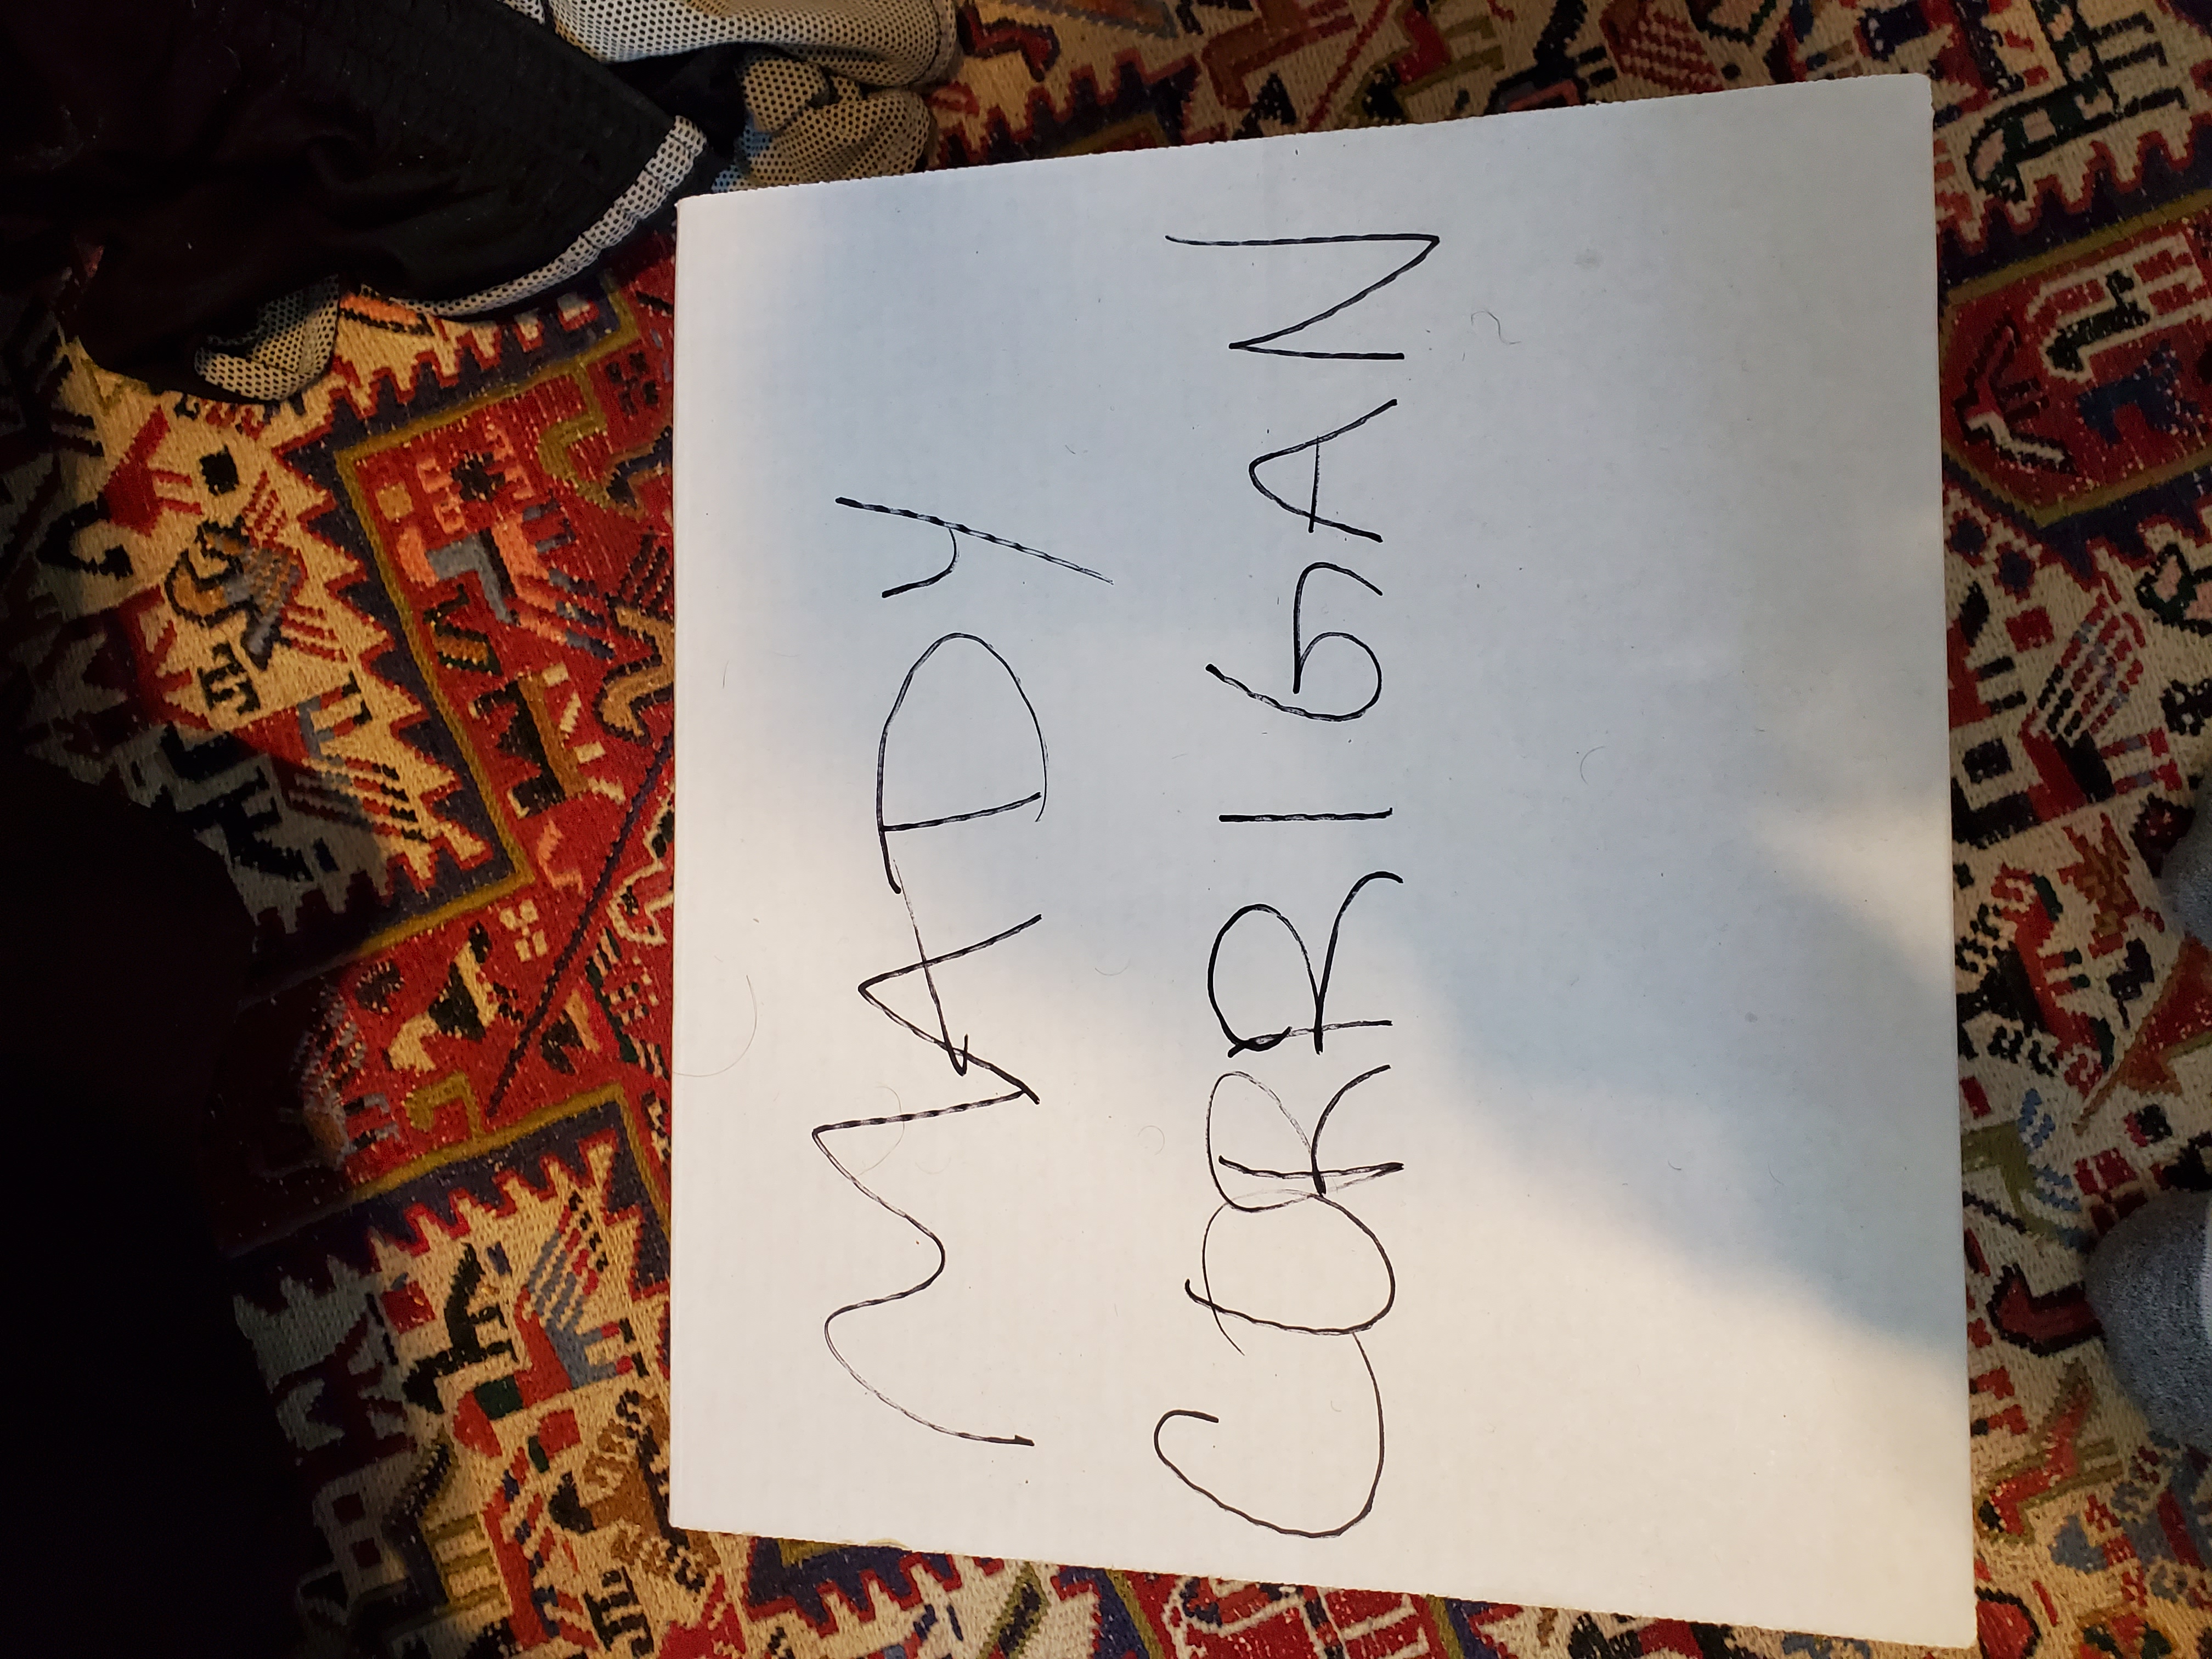 MADY
CORRIGAN